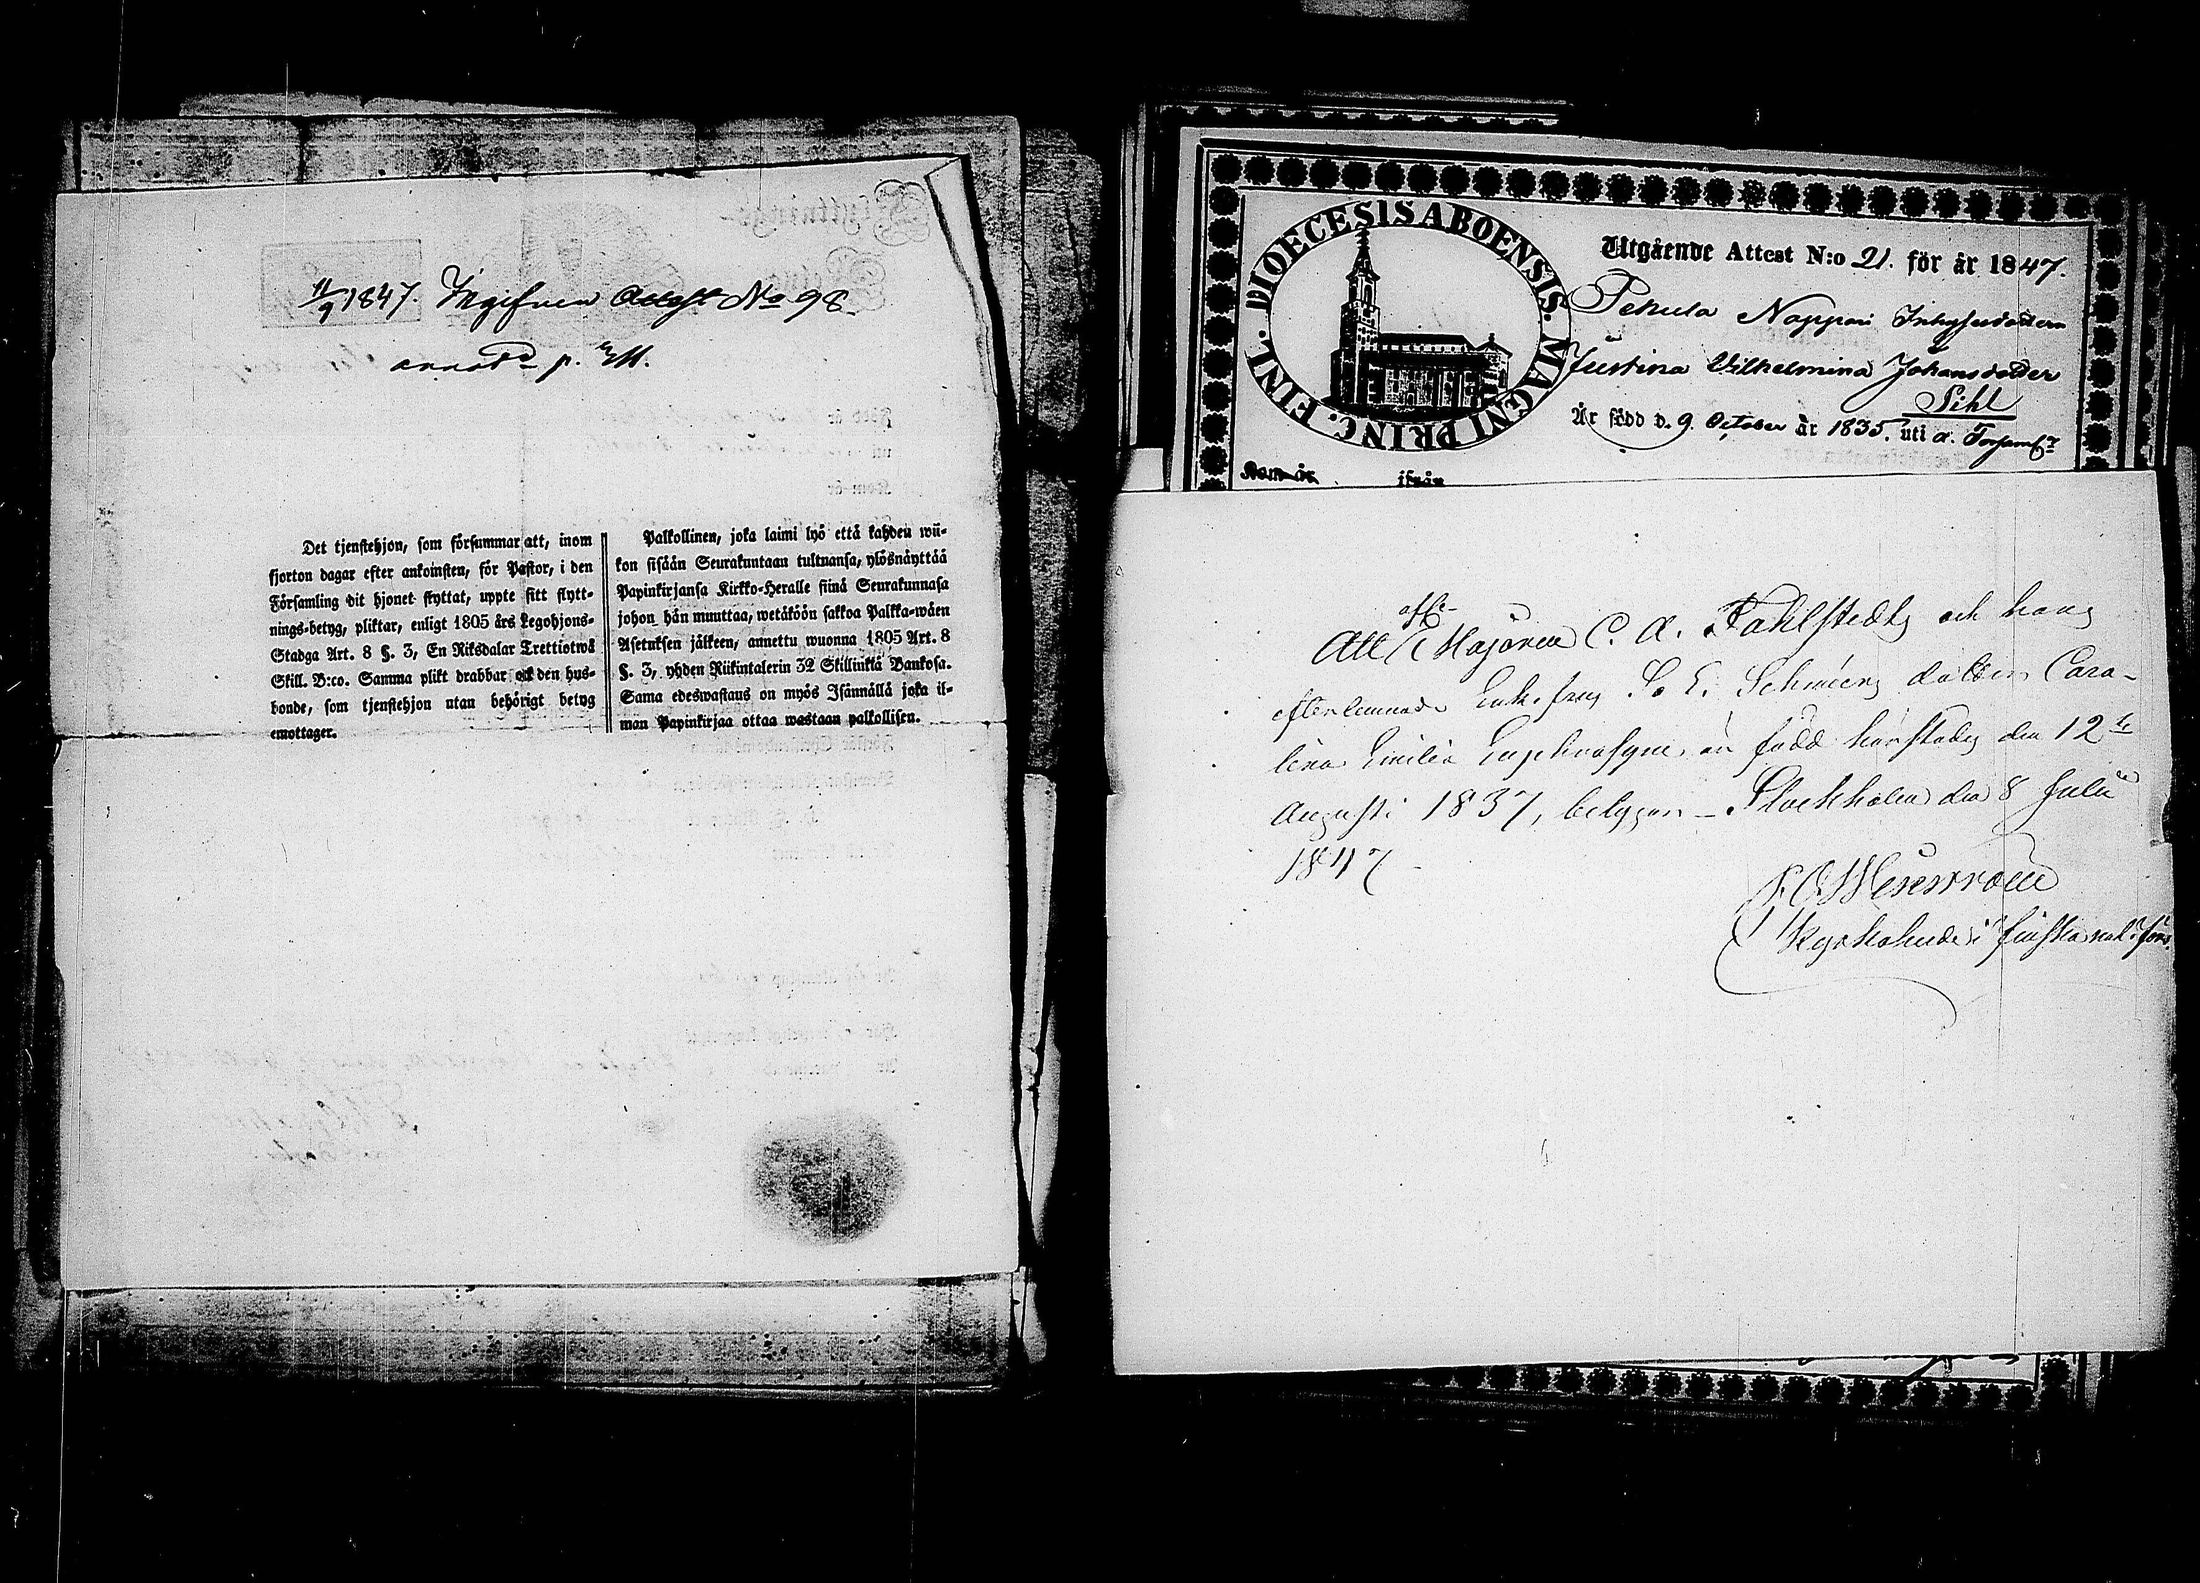 11/9 1847. Ingifven Attest No 98
annot. p.
Det tjenstehjon, som försummar att, inom
fjorton dagar efter ankomsten, för Pastor, i den
Församling dit hjonet flyttat, uppte sitt flytt-
nings-betyg, pliktar, enligt 1805 års Legohjons-
Stadga Art. 8 §. 3, En Riksdalar Trettiotwå
Skill. B:co. Samma plikt drabbar ock den hus-
bonde, som tjenstehjon utan behörigt betyg
emottager.
Palkollinen, joka laimi lyö että kahden wii-
kon sisään Seurakuntaan tultuansa, ylösnäyttää
Papinkirjansa Kirkko-Heralle siinä Seurakunnasa
johon hän muuttaa, wetäköön sakkoa Palkka-wäen
Asetuksen jälkeen, annettu wuonna 1805 Art. 8
§. 3, yhden Riikintalerin 32 Skillinkiä Bankosa.
Sama edeswastaus on myös Isännällä joka il-
man Papinkirjaa ottaa wastaan palkollisen.
FINL. DIOECESIS ABOENSIS. MAGNI PRINC.
Utgående Attest N:o 21. för år 1847.
Pekula Noppari Inhysesdottern
Justina Vilhelmina Johansdotter
Sihl
Är född d. 9 October år 1835. uti d. Församl:
Kom år ifrån
Att Majoren C. A. Fahlstedts och hans
efterlemnade Enkefrus S. E. Schmierz dotter Caro-
lina Emilia är född härstädes den 12te
Augusti 1837, betygar – Stockholm den 8 Julii
1847 –
Kyrkoherde i finska nat. förs.